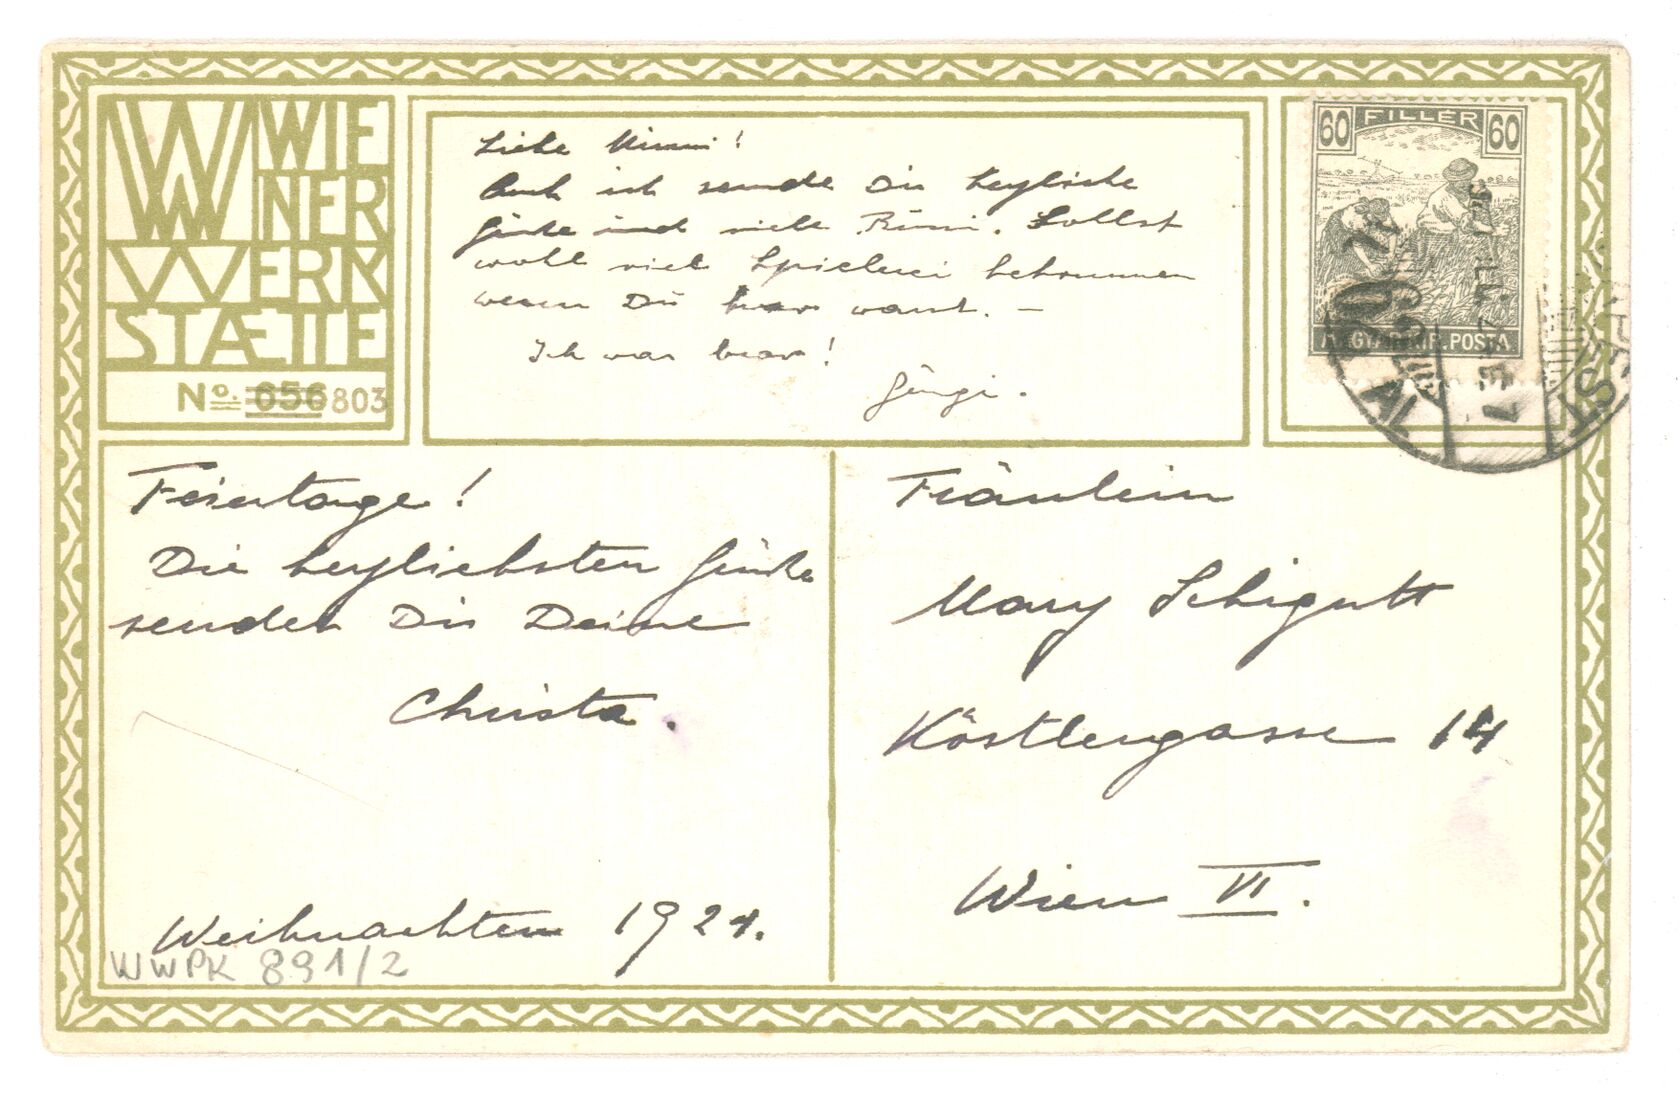 WIENER
WERK
STÆTTE
No. 656 803
Liebe Mimi!
Auch ich sende Dir herzliche
Grüße und viele Bussi. Sollst
wohl viel Spielerei bekommen
wenn Du brav warst. –
Ich war brav!
60 FILLÉR 60
MAGYAR KIR. POSTA
PEST
Feiertage!
Die herzlichsten Grüße
sendet Dir Deine
Christa.
Weihnachten 1921.
WWPK 891/2
Fräulein
Mary Schigutt
Köstlergasse 14
Wien VI.